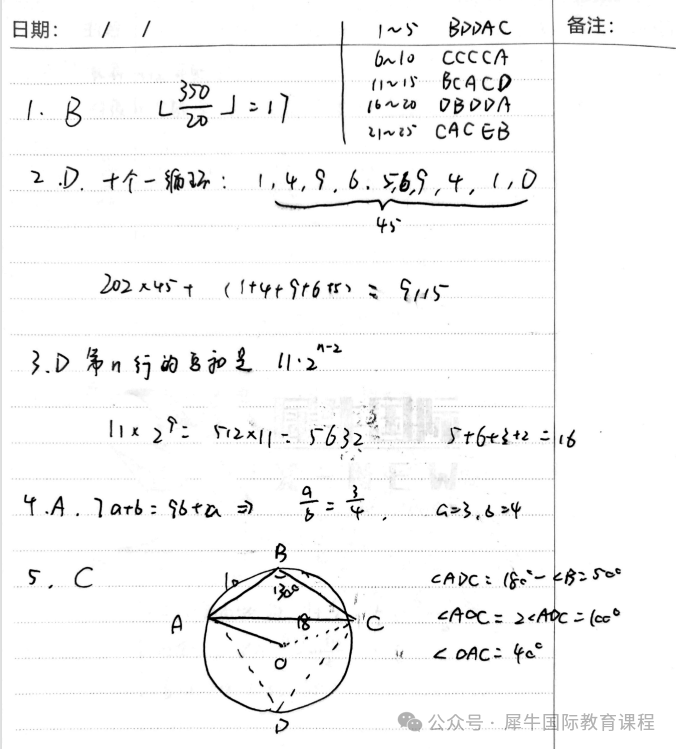 日期: / /
备注:
1~5 BDDAC
6~10 CCCCA
11~15 BCACD
16~20 DBDDA
21~25 CACEB
1. B ⌊350/20⌋=17
2.D. 十个一循环: 1,4,9,6.5,6,9,4,1,0
45
202×45+(1+4+9+6+5)=9115
3.D 第n行的总和是 11·2^(n-2)
11×2^9=512×11=5632 5+6+3+2=16
4.A. 7a+b=9b+a ⇒ a/b=3/4, a=3,b=4
5. C
B
10
130°
∠ADC=180°-∠B=50°
A
18
C
∠AOC=2∠ADC=100°
O
∠OAC=40°
D
公众号·犀牛国际教育课程